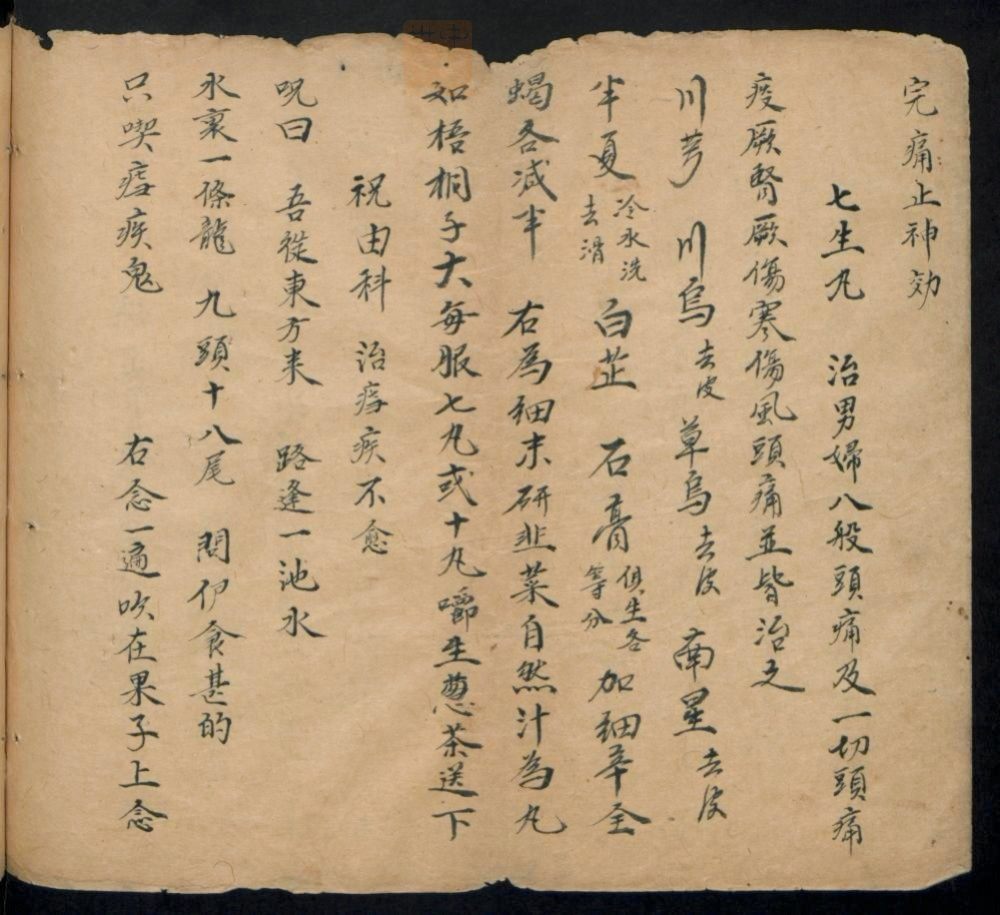 完痛止神効
七生丸 治男婦八般頭痛及一切頭痛
痰厥腎厥傷寒傷風頭痛並皆治之
川芎 川烏去皮 草烏去皮 南星去皮
半夏冷水洗去滑 白芷 石膏俱生各等分 加細辛全
蝎各減半 右為細末研韭菜自然汁為丸
如梧桐子大每服七丸或十丸嚼生蔥茶送下
祝由科 治瘧疾不愈
呪曰 吾從東方来 路逢一池水
水裏一條龍 九頭十八尾 問伊食甚的
只喫瘧疾鬼 右念一遍吹在果子上念